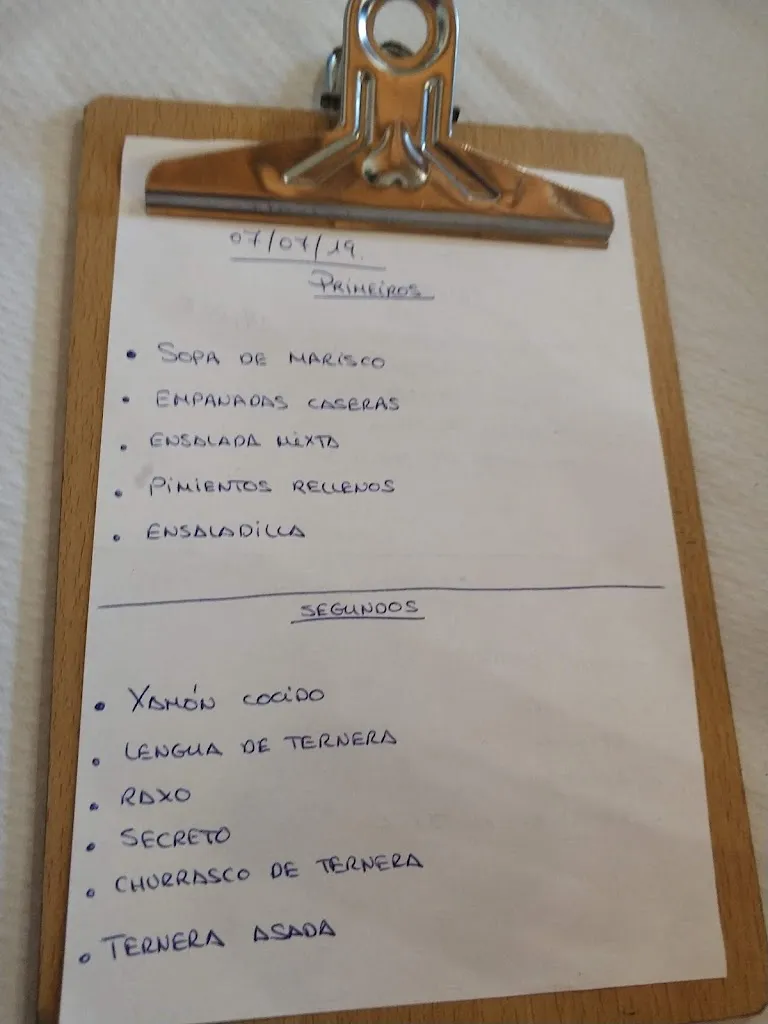 07/07/19.
PRIMEIROS
• SOPA DE MARISCO
• EMPANADAS CASERAS
• ENSALADA MIXTA
• PIMIENTOS RELLENOS
• ENSALADILLA
SEGUNDOS
• XAMÓN COCIDO
• LENGUA DE TERNERA
• RAXO
• SECRETO
• CHURRASCO DE TERNERA
• TERNERA ASADA